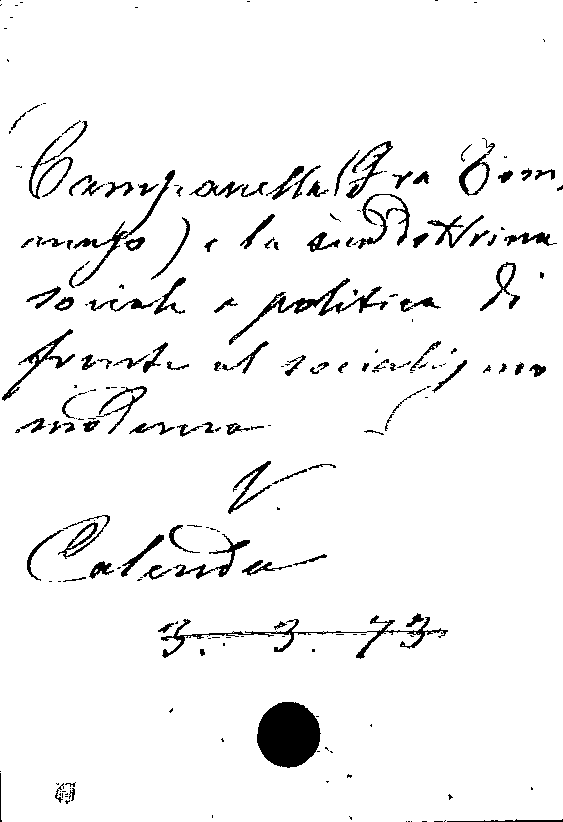 Campanella (Fra Tom,
maso) e la sua dottrina
sociale e politica di
fronte al socialismo
moderno
V.
Calenda
3. 3. 73